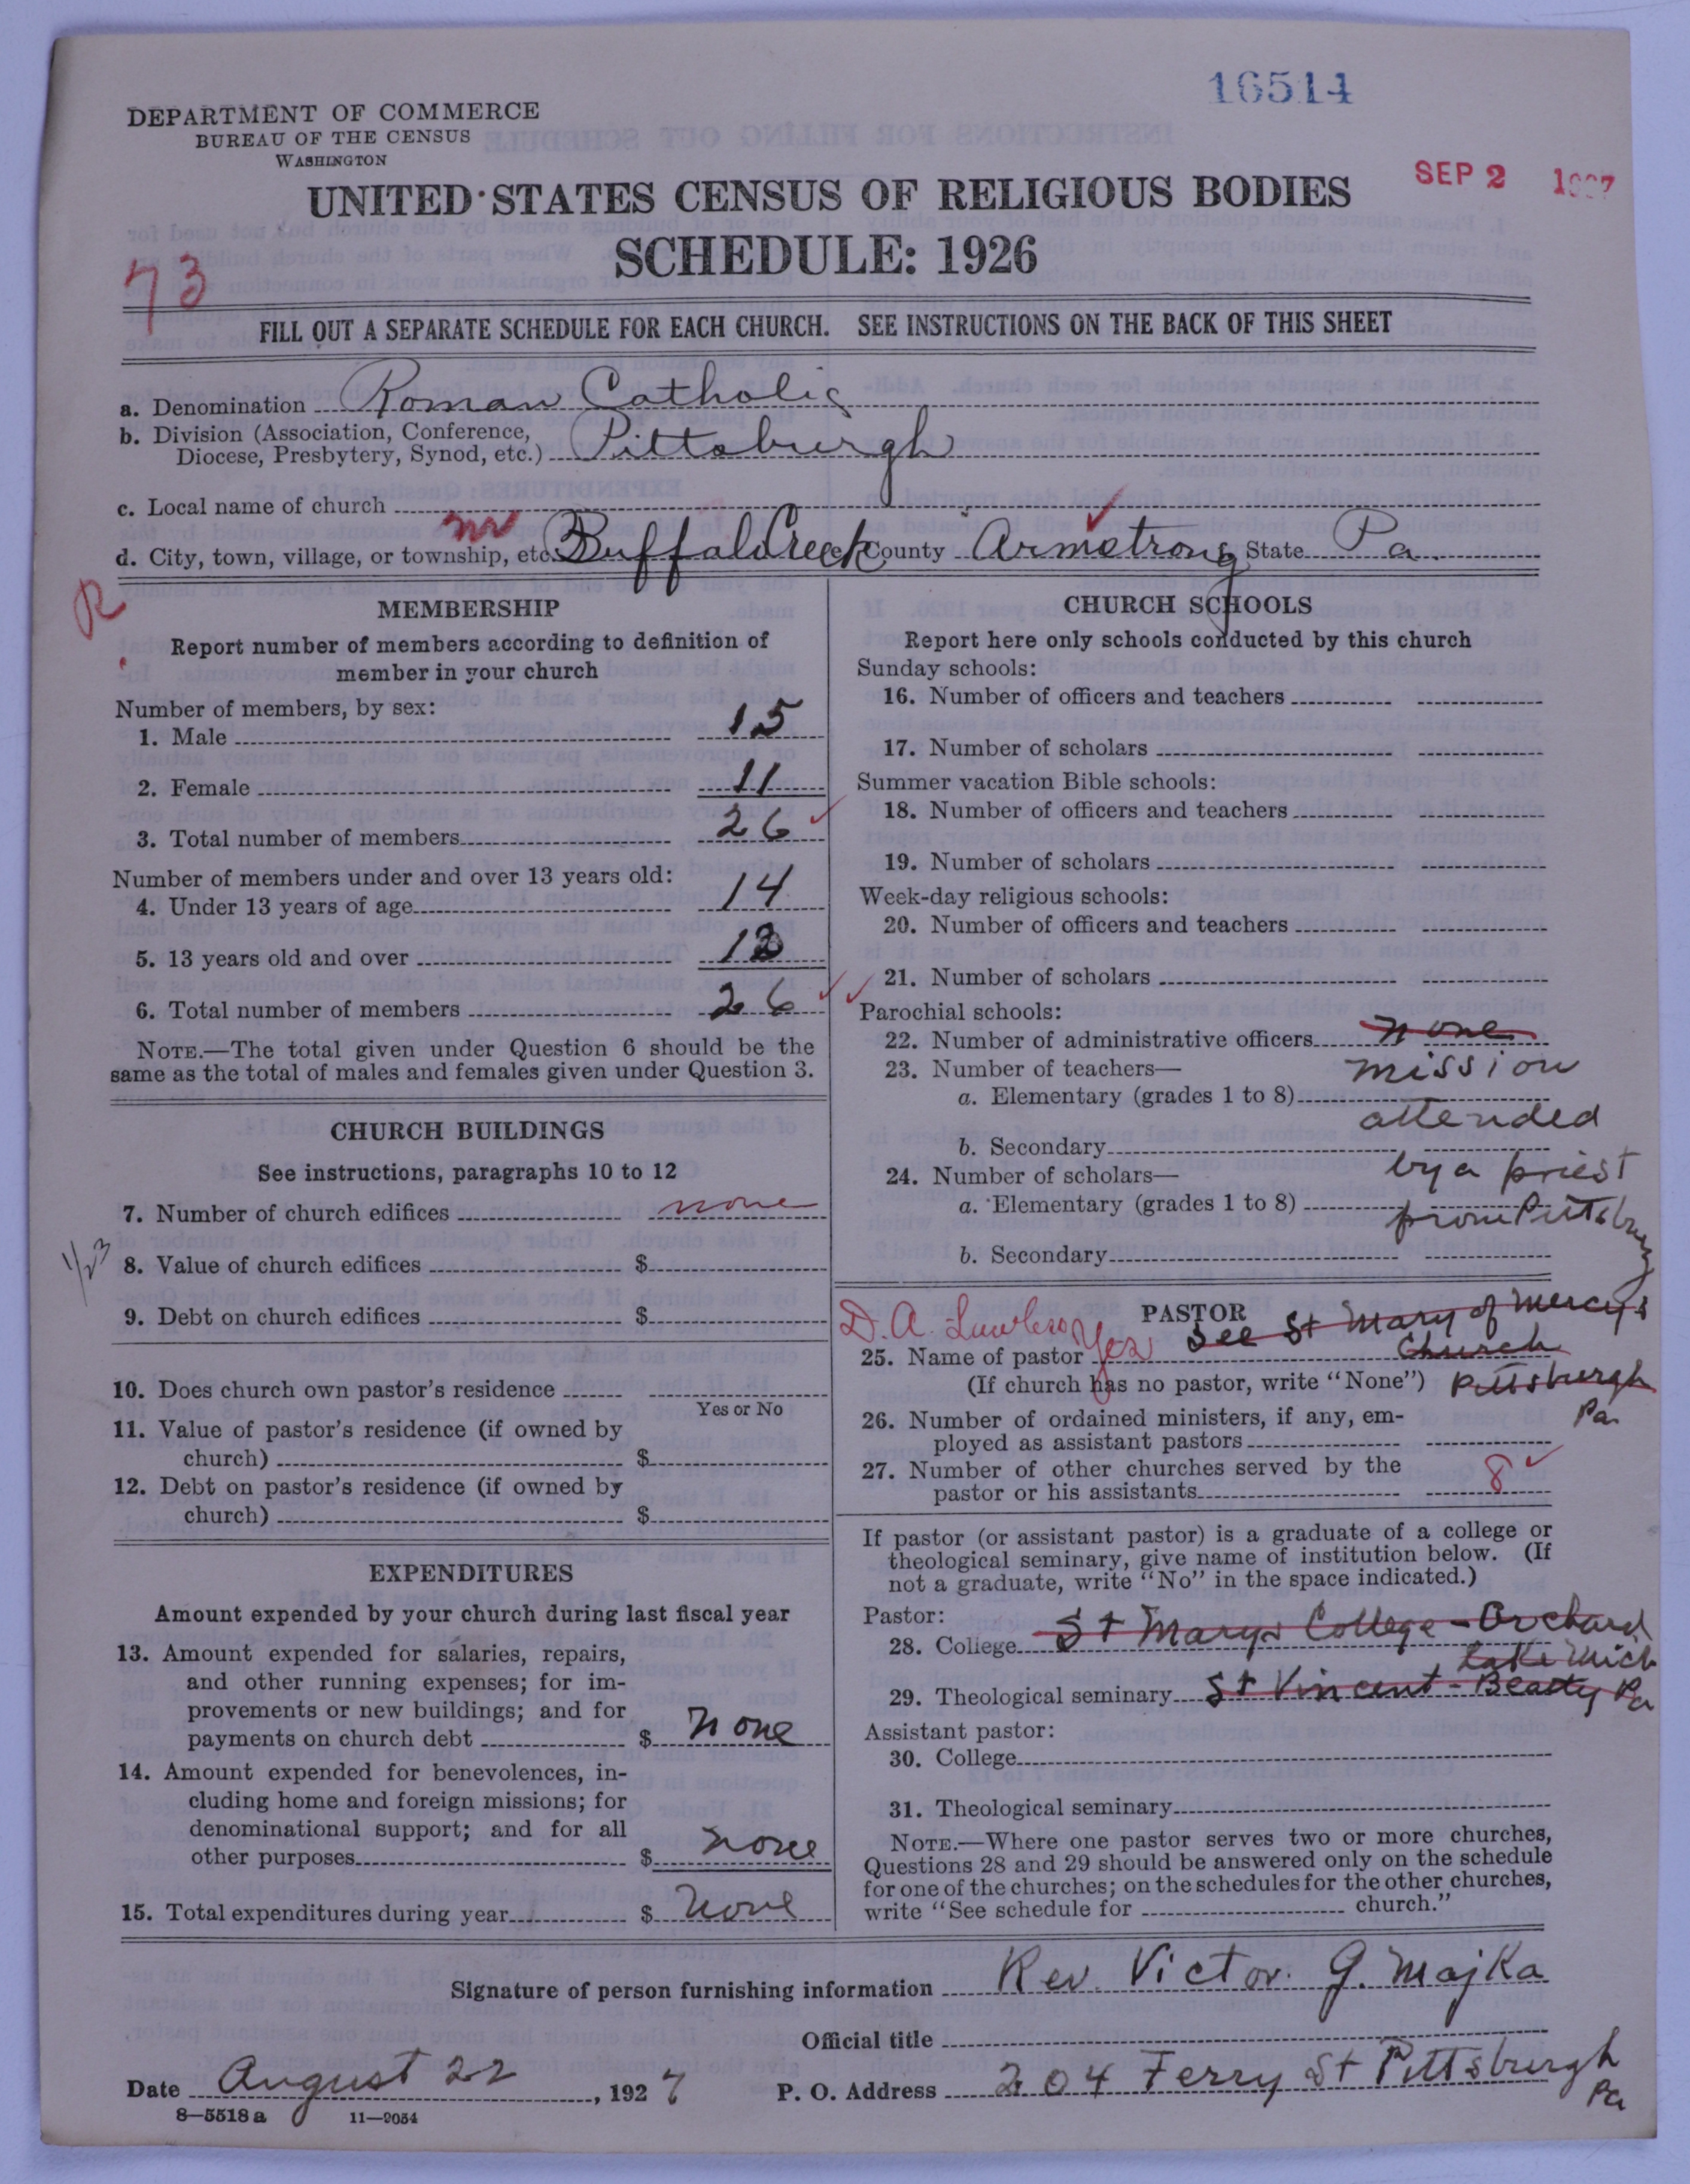 16514
DEPARTMENT OF COMMERCE
BUREAU OF THE CENSUS
WASHINGTON
SEP 2 1927
UNITED STATES CENSUS OF RELIGIOUS BODIES
SCHEDULE: 1926
73
FILL OUT A SEPARATE SCHEDULE FOR EACH CHURCH. SEE INSTRUCTIONS ON THE BACK OF THIS SHEET
a. Denomination Roman Catholic
b. Division (Association, Conference,
Diocese, Presbytery, Synod, etc.) Pittsburgh
c. Local name of church
nr
d. City, town, village, or township, etc. Buffalo Creek County Armstrong State Pa.
R
MEMBERSHIP
Report number of members according to definition of
member in your church
Number of members, by sex:
1. Male 15
2. Female 11
3. Total number of members 26
Number of members under and over 13 years old:
4. Under 13 years of age 14
5. 13 years old and over 12
6. Total number of members 26
NOTE.—The total given under Question 6 should be the
same as the total of males and females given under Question 3.
CHURCH BUILDINGS
See instructions, paragraphs 10 to 12
7. Number of church edifices none
1/23
8. Value of church edifices $
9. Debt on church edifices $
10. Does church own pastor's residence
Yes or No
11. Value of pastor's residence (if owned by
church) $
12. Debt on pastor's residence (if owned by
church) $
EXPENDITURES
Amount expended by your church during last fiscal year
13. Amount expended for salaries, repairs,
and other running expenses; for im-
provements or new buildings; and for
payments on church debt $ none
14. Amount expended for benevolences, in-
cluding home and foreign missions; for
denominational support; and for all
other purposes $ none
15. Total expenditures during year $ none
CHURCH SCHOOLS
Report here only schools conducted by this church
Sunday schools:
16. Number of officers and teachers
17. Number of scholars
Summer vacation Bible schools:
18. Number of officers and teachers
19. Number of scholars
Week-day religious schools:
20. Number of officers and teachers
21. Number of scholars
Parochial schools:
22. Number of administrative officers none
23. Number of teachers— mission
a. Elementary (grades 1 to 8)
attended
b. Secondary
24. Number of scholars— by a priest
a. Elementary (grades 1 to 8) from Pittsburg
b. Secondary
D. A. Lawless PASTOR See St Mary of Mercys
25. Name of pastor Yes Church
(If church has no pastor, write "None") Pittsburgh
Pa.
26. Number of ordained ministers, if any, em-
ployed as assistant pastors
27. Number of other churches served by the
pastor or his assistants 8
If pastor (or assistant pastor) is a graduate of a college or
theological seminary, give name of institution below. (If
not a graduate, write "No" in the space indicated.)
Pastor:
28. College St Marys College - Orchard
Lake Mich
29. Theological seminary St Vincent - Beatty Pa
Assistant pastor:
30. College
31. Theological seminary
NOTE.—Where one pastor serves two or more churches,
Questions 28 and 29 should be answered only on the schedule
for one of the churches; on the schedules for the other churches,
write "See schedule for church."
Signature of person furnishing information Rev. Victor G. Majka
Official title
Date August 22, 1927 P. O. Address 204 Ferry St Pittsburgh
Pa
8—5518a 11—9054